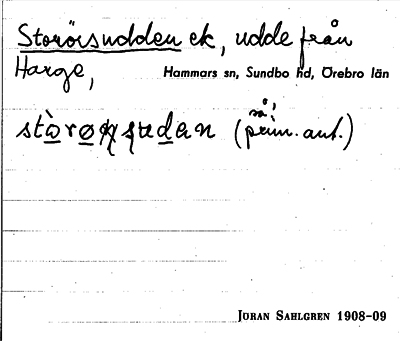 Storörsudden ek, udde från
Harge, Hammars sn, Sundbo hd, Örebro län
så!
(prim. ant.)
JÖRAN SAHLGREN 1908-09